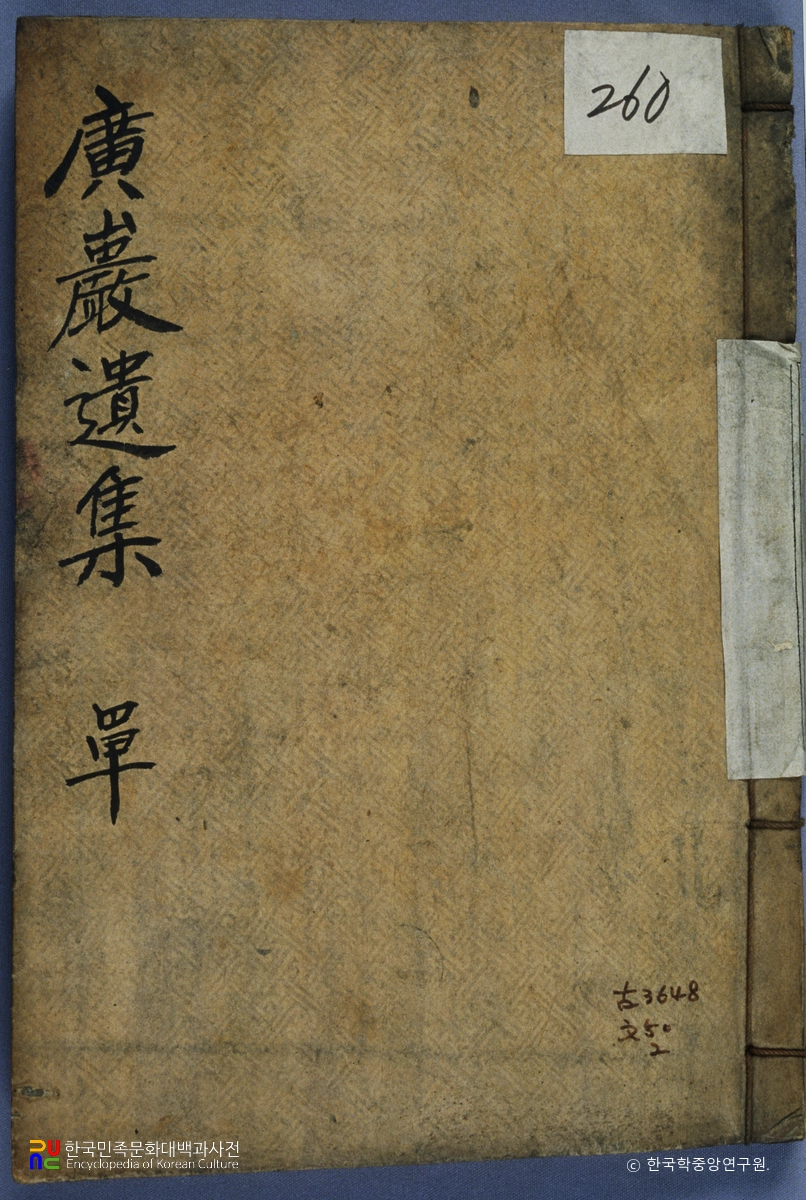 廣巖遺集 單
260
古3648
文50
2
한국민족문화대백과사전
Encyclopedia of Korean Culture
© 한국학중앙연구원.